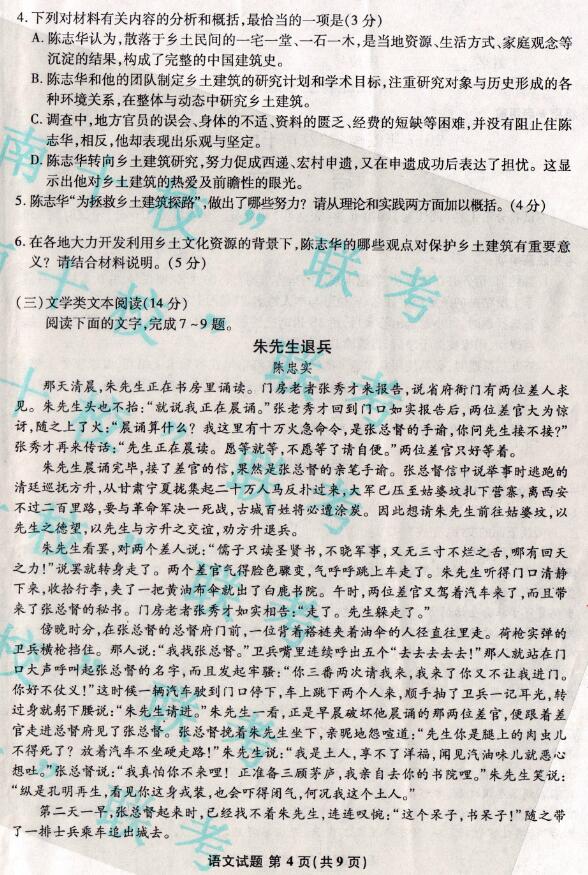 4. 下列对材料有关内容的分析和概括,最恰当的一项是(3 分)
A. 陈志华认为,散落于乡土民间的一宅一堂、一石一木,是当地资源、生活方式、家庭观念等
沉淀的结果,构成了完整的中国建筑史。
B. 陈志华和他的团队制定乡土建筑的研究计划和学术目标,注重研究对象与历史形成的各
种环境关系,在整体与动态中研究乡土建筑。
C. 调查中,地方官员的误会、身体的不适、资料的匮乏、经费的短缺等困难,并没有阻止住陈
志华,相反,他却表现出乐观与坚定。
D. 陈志华转向乡土建筑研究,努力促成西递、宏村申遗,又在申遗成功后表达了担忧。这显
示出他对乡土建筑的热爱及前瞻性的眼光。
5. 陈志华“为拯救乡土建筑探路”,做出了哪些努力？请从理论和实践两方面加以概括。(4 分)
6. 在各地大力开发利用乡土文化资源的背景下,陈志华的哪些观点对保护乡土建筑有重要意
义？请结合材料说明。(5 分)
(三)文学类文本阅读(14 分)
阅读下面的文字,完成 7~9 题。
朱先生退兵
陈忠实
那天清晨,朱先生正在书房里诵读。门房老者张秀才来报告,说省府衙门有两位差人求
见。朱先生头也不抬:“就说我正在晨诵。”张老秀才回到门口如实报告后,两位差官大为惊
讶,随之上了火:“晨诵算什么？我这里有十万火急命令,是张总督的手谕,你问先生接不接?”
张秀才再来传话:“先生正在晨读。愿等就等,不愿等了请自便。”两位差官只好等着。
朱先生晨诵完毕,接了差官的信,果然是张总督的亲笔手谕。张总督信中说举事时逃跑的
清廷巡抚方升,从甘肃宁夏拢集起二十万人马反扑过来,大军已压至姑婆坟扎下营寨,离西安
不过二百里路,要与革命军决一死战,古城百姓将必遭涂炭。因此想请朱先生前往姑婆坟,以
先生之德望,以先生与方升之交谊,劝方升退兵。
朱先生看罢,对两个差人说:“儒子只读圣贤书,不晓军事,又无三寸不烂之舌,哪有回天
之力!”说罢就转身走了。两个差官气得脸色骤变,气呼呼跳上车走了。朱先生听得门口清静
下来,收拾行李,夹了一把黄油布伞就出了白鹿书院。午时,两位差官又驾着汽车来了,而且带
来了张总督的秘书。门房老者张秀才如实相告:“走了。先生躲走了。”
傍晚时分,在张总督的总督府门前,一位背着褡裢夹着油伞的人径直往里走。荷枪实弹的
卫兵横枪挡住。那人说:“我找张总督。”卫兵嘴里连续呼出五个“去去去去去!”那人就站在门
口大声呼叫起张总督的名字,而且发起牢骚:“你三番两次请我来,我来了你又不让我进门。
你好不仗义!”这时候一辆汽车驶到门口停下,车上跳下两个人来,顺手抽了卫兵一记耳光,转
过身就躬下腰说:“朱先生请进。”朱先生一看,正是早晨破坏他晨诵的那两位差官,便跟着差
官走进总督府见了张总督。张总督挽着朱先生坐下,亲昵地怨喧道:“先生你是腿上的肉虫儿
不得死了？放着汽车不坐硬走路!”朱先生说:“我是土人,享不了洋福,闻见汽油味儿就恶心
想吐。”张总督说:“我真怕你不来哩！正准备三顾茅庐,我亲自去你的书院哩。”朱先生笑说:
“纵是孔明再生,看见你这身戎装,也会吓得闭气,何况我这个土人。”
第二天一早,张总督起来时,已经找不着朱先生,连连叹惋:“这个呆子,书呆子!”随之带
了一排士兵乘车追出城去。
语文试题 第 4 页(共 9 页)